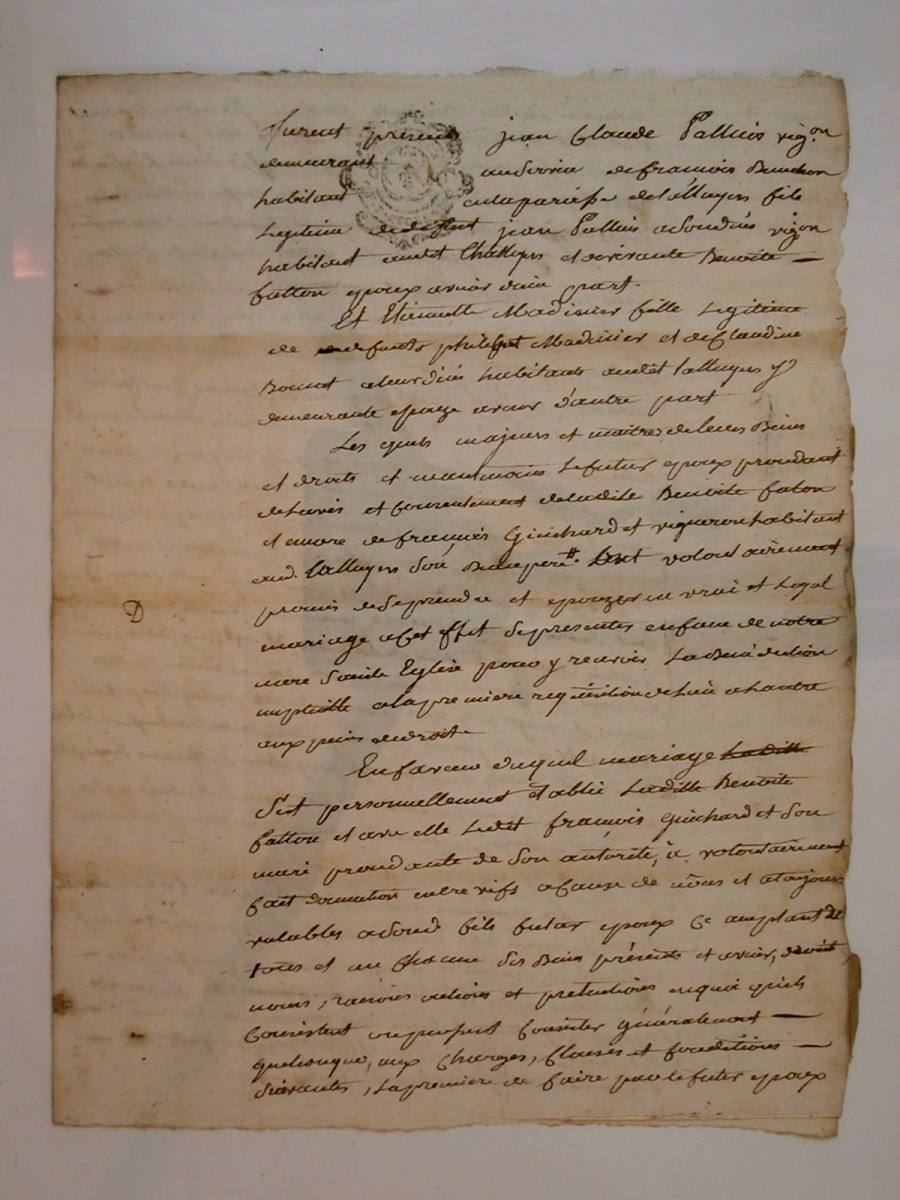 furent présents jean Claude Palluis vigon
demeurant au service de francois
habitant en la paroisse de fils
Legitime de deffunt jean Palluis vigon
habitant audit et de vivante Benoite
fatton epoux avenir d'une part.
Et Etiennette Madinier fille Legitime
de defunts philipt Madinier et de Claudine
Bonnet habitants audit
demeurante epouze avenir d'autre part
Les quels majeurs et maitres de leurs Biens
et droits et neantmoins Le futur epoux procedant
de Lavis et Consentement de ladite Benoite fatton
et encore de francois Guichard et vigneron habitant
aud. Son Beaupere. Ont volontairement
promis de se prendre et epouzer en vrai et Loyal
mariage a Cet effet Se presenter en face de notre
mere Sainte Eglise pour y recevoir La Benediction
nuptialle a la premiere requisition de Lun a Lautre
aux peines de droit.
En faveur duquel mariage Ladite
S'est personnellement etablie Ladite Benoite
fatton et avec elle Ledit francois Guichard et Son
mari procedante de Son autorité, a volontairement
fait donnation entre vifs a Cause de nôces et a toujours
valables a Sond. fils futur epoux Ce acceptant de
tous et un Chacun Ses Biens présents et avenir, droits
noms, raisons actions et pretentions en quoi qu'ils
Consistent ou puissent Consister généralement
quelconque, aux Charges, Clauses et Conditions
Suivantes, La premiere de faire par le futur epoux
D